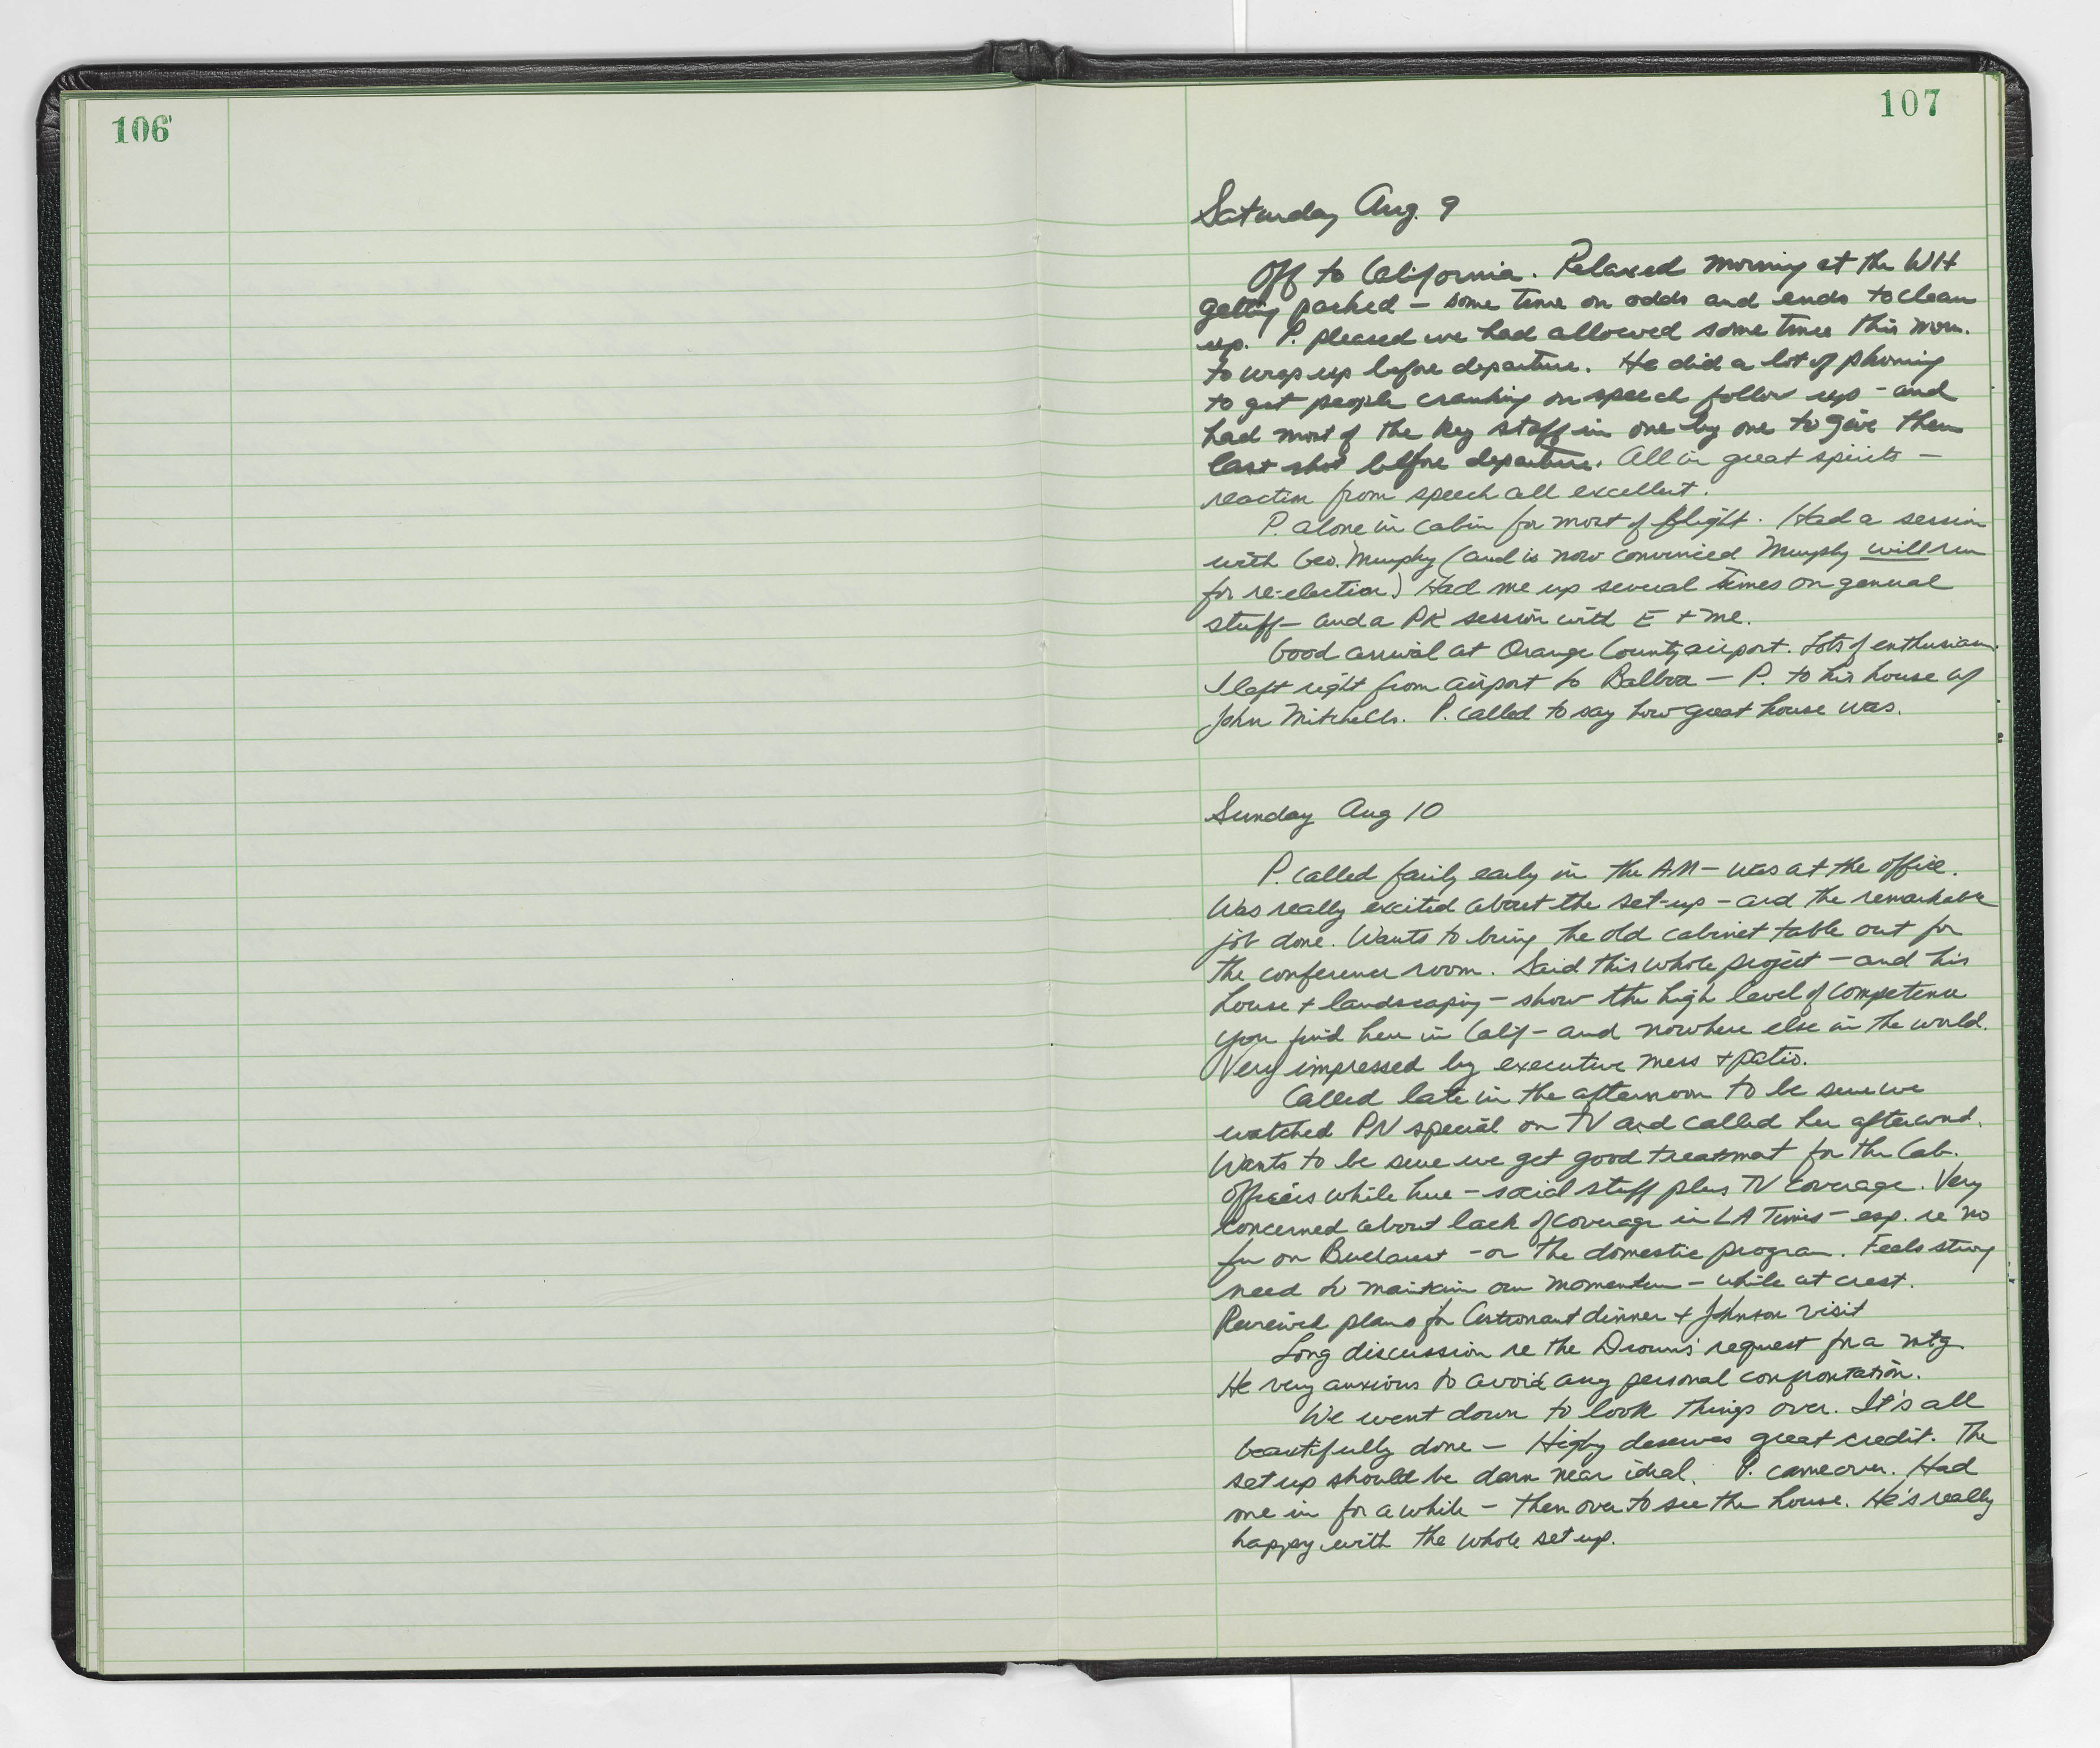 106
107
Saturday Aug. 9
Off to California. Relaxed morning at the WH
getting packed – some time on odds and ends to clean
up. P. pleased we had allowed some time this morn.
to wrap up before departure. He did a lot of phoning
to get people cranking on speech follow up – and
had most of the key staff in one by one to give them
last shot before departure. All in great spirits –
reaction from speech all excellent.
P. alone in cabin for most of flight. Had a session
with Geo. Murphy (and is now convinced Murphy will run
for re-election) Had me up several times on general
stuff – and a PR session with E + me.
Good arrival at Orange County airport. Lots of enthusiasm.
I left right from airport to Balboa – P. to his house w/
John Mitchells. P. called to say how great house was.
Sunday Aug 10
P. called fairly early in the AM – was at the office.
Was really excited about the set-up – and the remarkable
job done. Wants to bring the old cabinet table out for
the conference room. Said this whole project – and his
house + landscaping – show the high level of competence
you find here in Calif – and nowhere else in the world.
Very impressed by executive mess + patio.
Called late in the afternoon to be sure we
watched PN special on TV and called her afterward.
Wants to be sure we get good treatment for the Cab.
officers while here – social stuff plus TV coverage. Very
concerned about lack of coverage in LA Times – esp. re no
on Bucharest – or the domestic program. Feels strong
need to maintain our momentum – while at crest.
Reviewed plans for Astronaut dinner + Johnson visit
Long discussion re the Drowns' request for a mtg
He very anxious to avoid any personal confrontation.
We went down to look things over. It's all
beautifully done – Higby deserves great credit. The
set up should be darn near ideal. P. came over. Had
me in for a while – then over to see the house. He's really
happy with the whole set up.